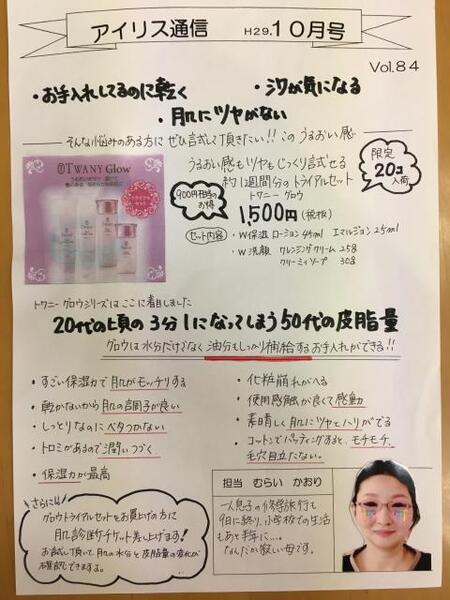 アイリス通信
H29.10月号
Vol.84
・お手入れしてるのに乾く
・シワが気になる
・肌にツヤがない
そんな小悩みのある方に ぜひ試して頂きたい!! この うるおい感
うるおい感もツヤもじっくり試せる
約1週間分のトライアルセット
限定
20コ
入荷
TWANY Glow
トライアル
セット
900円相当の
お得
トワニー グロウ
1,500円(税抜)
セット内容
・W保湿 ローション45ml エマルジョン25ml
・W洗顔 クレンジングクリーム 25g
クリーミィソープ 30g
トワニー グロウシリーズはここに着目しました
20代の頃の3分1になってしまう50代の皮脂量
グロウは水分だけでなく 油分もしっかり補給する お手入れができる!!
・すごい保湿力で肌がモッチリする
・乾かないから肌の調子が良い
・しっとりなのにベタつかない
・トロミがあるので潤いつづく
・保湿力が最高
・化粧崩れがへる
・使用感触が良くて感動
・素晴しく肌にツヤとハリがでる
・コットンでパッティングすると、モチモチ、
毛穴目立たない。
さらに!!
グロウトライアルセットをお買上げの方に
肌診断チケット差し上げます!
お試し頂いて、肌の水分と皮脂量の変化が
確認できます。
担当 むらい かおり
一人息子の修学旅行も
9日に終り、小学校での生活
もあと半年に…。
なんだか寂しい母です。